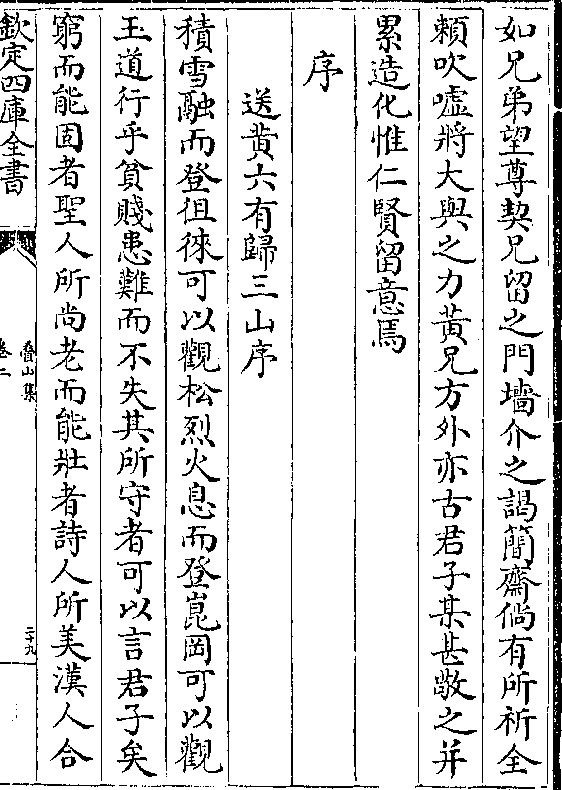 如兄弟望尊契兄留之門墻介之謁簡齋倘有所祈全
頼吹噓將大與之力黄兄方外亦古君子某甚敬之并
累造化惟仁賢留意焉
序
送黄六有歸三山序
積雪融而登徂徠可以觀松烈火息而登崑岡可以觀
玉道行乎貧賤患難而不失其所守者可以言君子矣
窮而能固者聖人所尚老而能壯者詩人所美漢人合
欽定四庫全書
疊山集
卷二
二十九